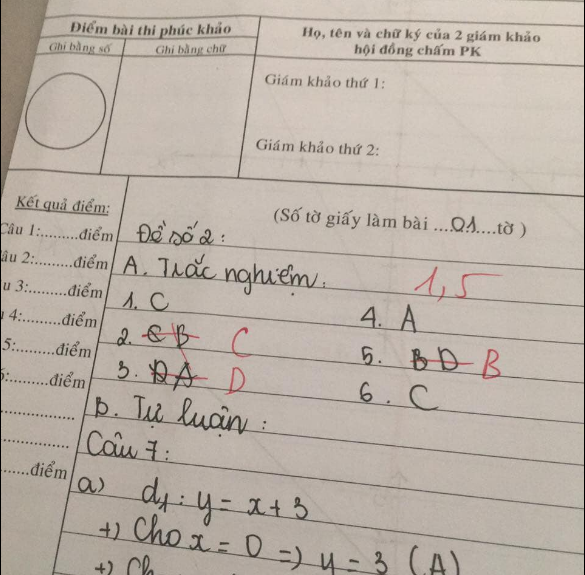 Điểm bài thi phúc khảo
Ghi bằng số Ghi bằng chữ
Họ, tên và chữ ký của 2 giám khảo
hội đồng chấm PK
Giám khảo thứ 1:
Giám khảo thứ 2:
Kết quả điểm:
(Số tờ giấy làm bài ....01....tờ )
Câu 1:.........điểm
Đề số 2:
âu 2:.........điểm
A. Trắc nghiệm:
1,5
u 3:.........điểm
1. C
4. A
4:.........điểm
2. C B C
5. B D B
5:.........điểm
3. D A D
6. C
:.........điểm
B. Tự luận:
Câu 7:
......điểm
a) d1: y = x + 3
+) Cho x = 0 => y = 3 (A)
+) Ch